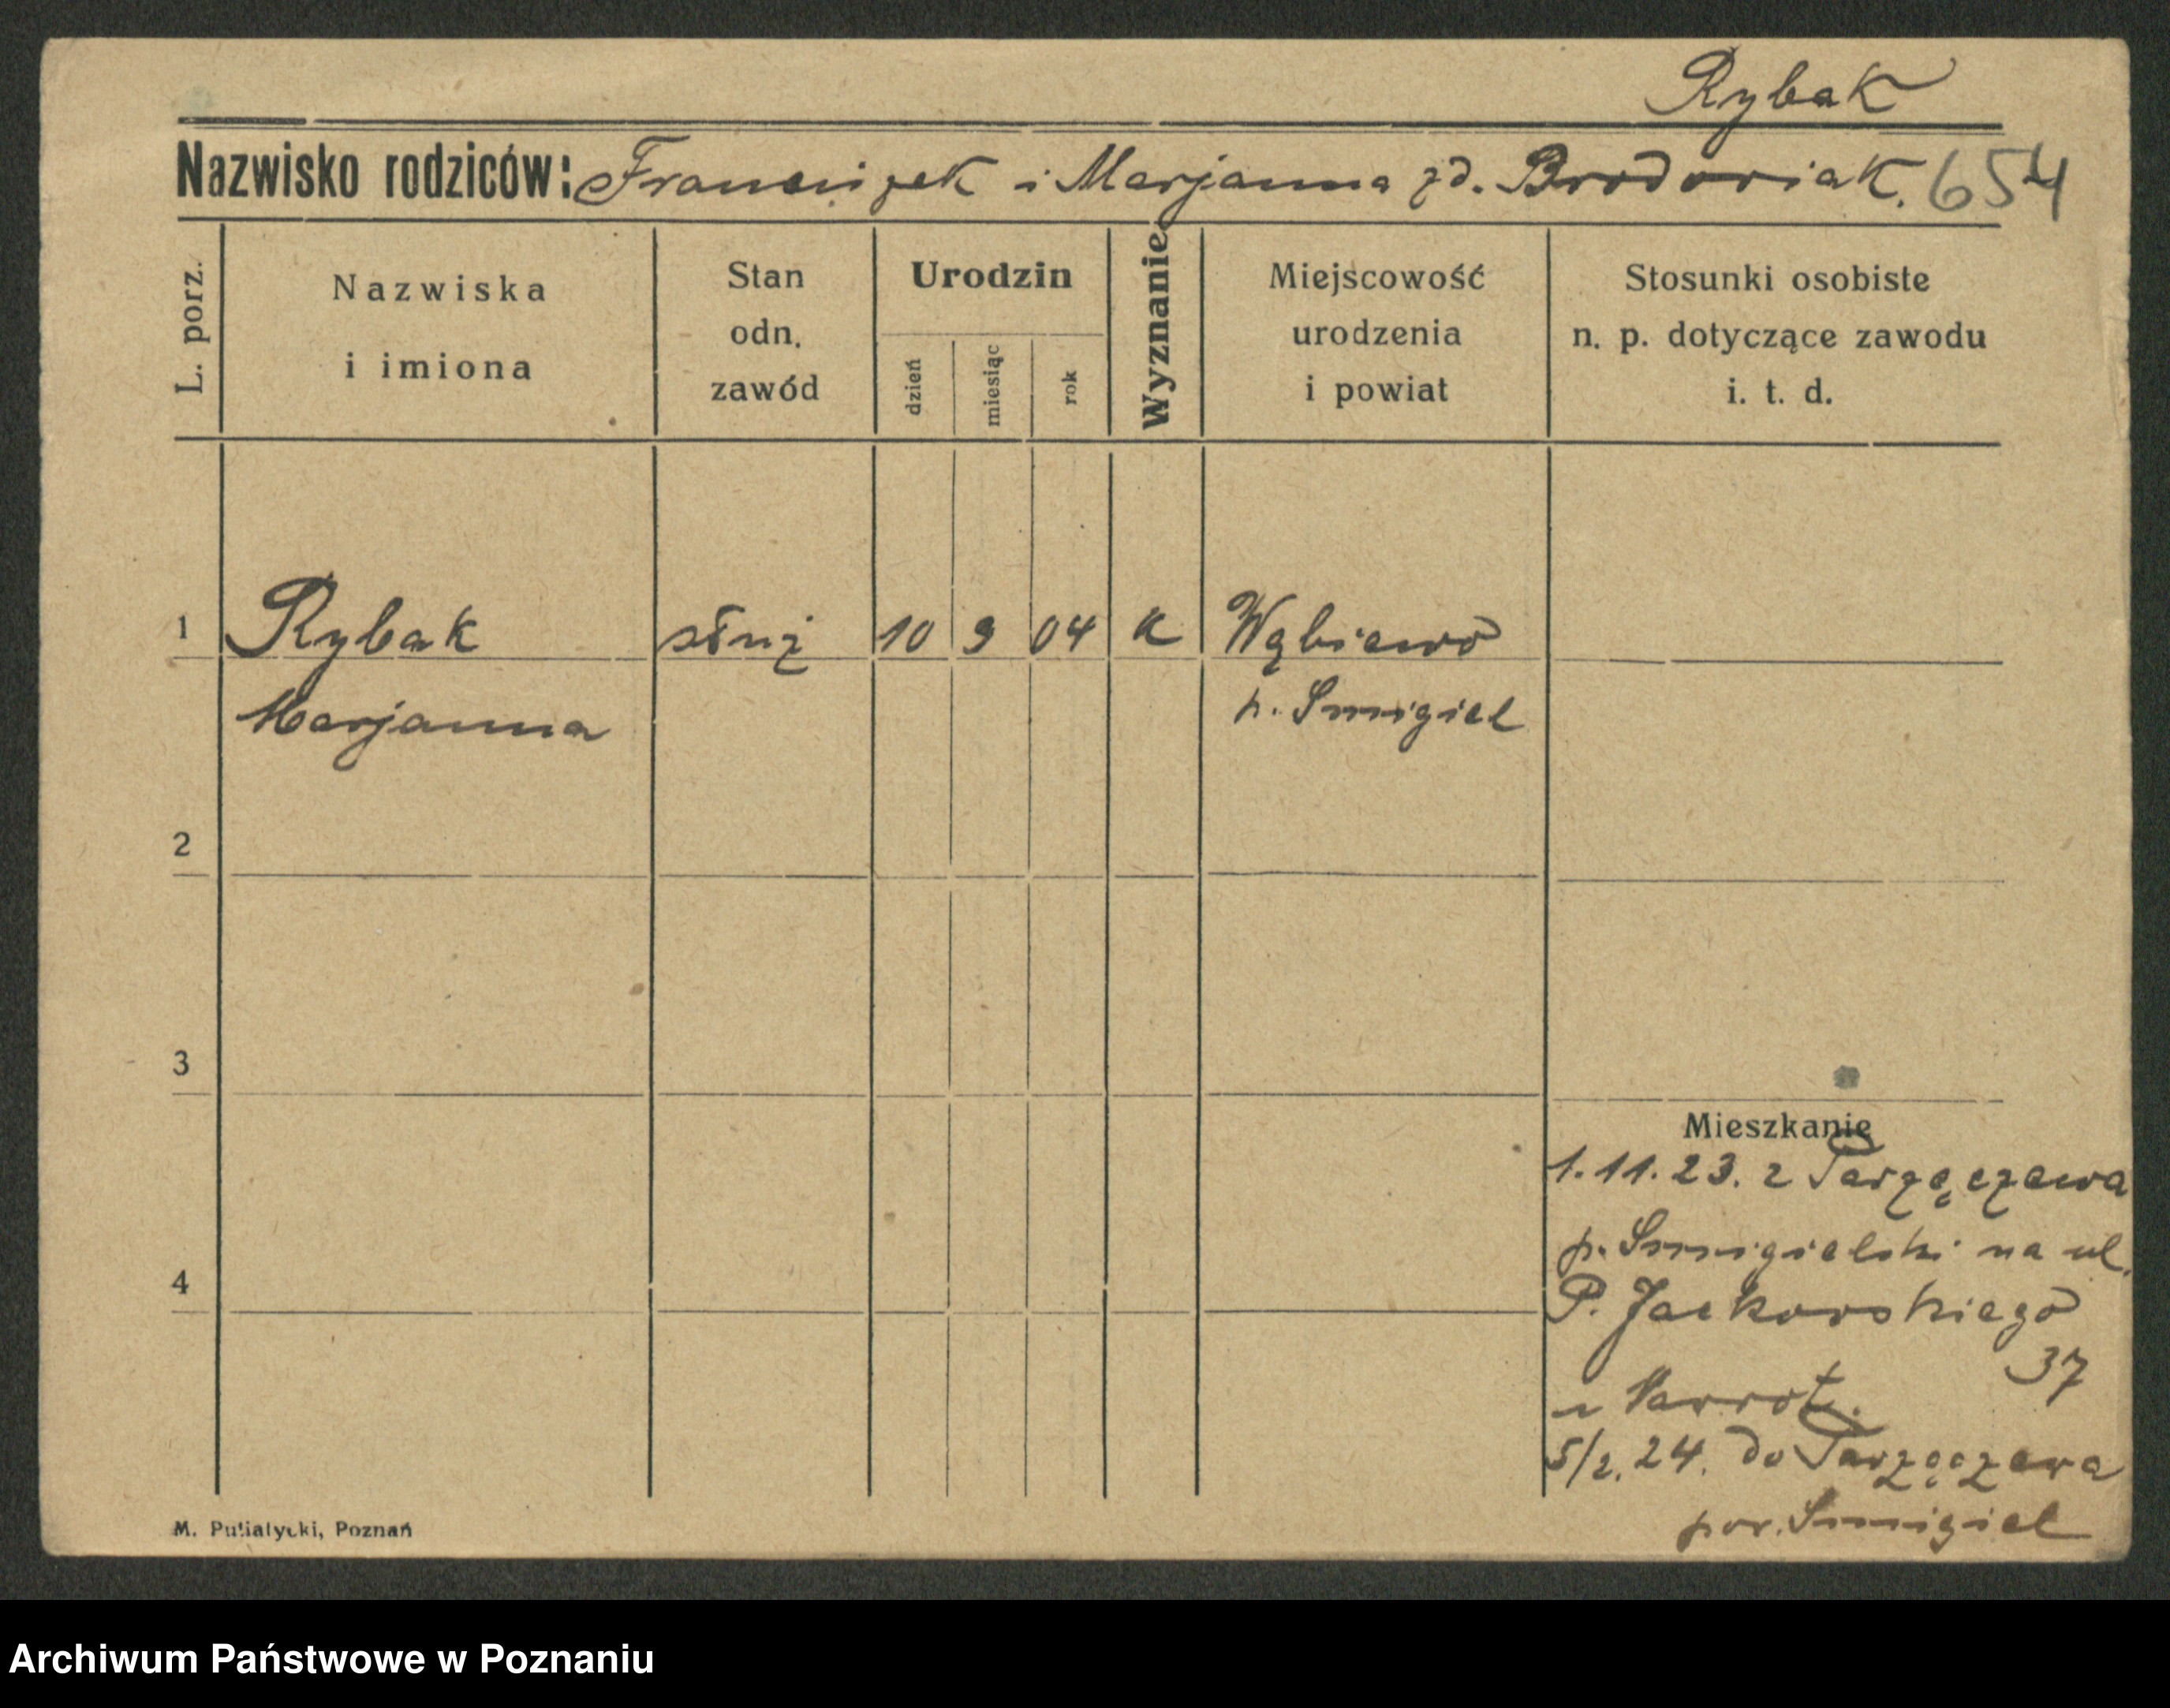 Rybak
Nazwisko rodziców: Franciszek i Marjanna zd. Brodoriak. 654
L. porz.
Nazwiska i imiona
Stan odn. zawód
Urodzin
dzień
miesiąc
rok
Wyznanie
Miejscowość urodzenia i powiat
Stosunki osobiste n. p. dotyczące zawodu i. t. d.
1 Rybak służ 10 9 04 K Wąbiewo
Marjanna p. Smigiel
2
3
Mieszkanie
1.11.23. z
p. Smigielski na ul.
4
P. Jackowskiego
37
u
5/2. 24. do
pow. Smigiel
M. Putiatycki, Poznań
Archiwum Państwowe w Poznaniu